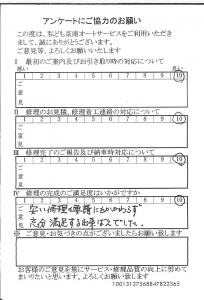 アンケートにご協力のお願い
この度は、私ども京南オートサービスをご利用いただき
まして、誠にありがとうございます。
ご意見等、よろしくお願いいたします
Ⅰ 最初のご案内及びお引き取り時の対応について
悪い 良い
1 2 3 4 5 6 7 8 9 10
ご意見
Ⅱ 修理のお見積、修理着工連絡の対応について
1 2 3 4 5 6 7 8 9 10
ご意見
Ⅲ 修理完了のご報告及び納車時対応について
1 2 3 4 5 6 7 8 9 10
ご意見
Ⅳ 修理の完成のご満足度はいかがですか
1 2 3 4 5 6 7 8 9 10
ご意見
安い修理費にもかかわらず
充分満足する出来ばえでした。
※ ご意見・お気づきの点がございましたらお願い致します
お客様のご意見を基にサービス・修理品質の向上に努めて
まいりたいと思います。よろしくお願い致します。
10013127568847822365